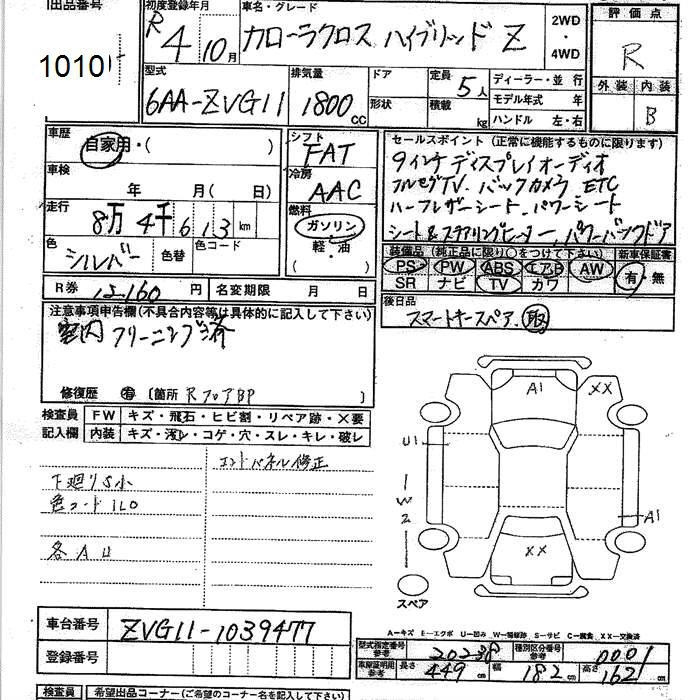 出品番号
1010
初度登録年月
R 4 10月
車名・グレード
カローラクロス ハイブリッド Z
2WD
・
4WD
評価点
R
外装 内装
B
型式
6AA-ZVG11
排気量
1800 cc
ドア
形状
定員
5人
積載
kg
ディーラー・並行
モデル年式 年
ハンドル 左・右
車歴
自家用・( )
車検
年 月( 日)
走行
8万4千613 km
色
シルバー
色替
色コード
シフト
FAT
冷房
AAC
燃料
ガソリン
軽・油
( )
セールスポイント (正常に機能するものに限ります)
9インチディスプレイオーディオ
フルセグTV. バックカメラ ETC
ハーフレザーシート. パワーシート
シート&ステアリングヒーター. パワーバックドア
装備品 (純正品に限り○をつけて下さい)
新車保証書
PS PW ABS エアB AW
SR ナビ TV カワ
有・無
R券 12160 円
名変期限 月 日
後日品
スマートキースペア. 取
注意事項申告欄(不具合内容等は具体的に記入して下さい)
室内クリーニング済
修復歴 有 〔箇所 RフロアBP
検査員
記入欄
FW キズ・飛石・ヒビ割・リペア跡・X要
内装 キズ・汚レ・コゲ・穴・スレ・キレ・破レ
エンドパネル修正
下廻りS小
色コード1L0
各 A U
A1
XX
U1
1
W
2
A1
XX
スペア
A―キズ E―エクボ U―凹み W―補修跡 S―サビ C―腐食 XX―交換済
車台番号
ZVG11-1039477
登録番号
型式指定番号
参考
20238
種別区分番号
参考
0001
車庫証明用
参考
長さ 449 cm
幅 182 cm
高さ 162 cm
検査員
希望出品コーナー(ご希望のコーナー名を記入して下さい)